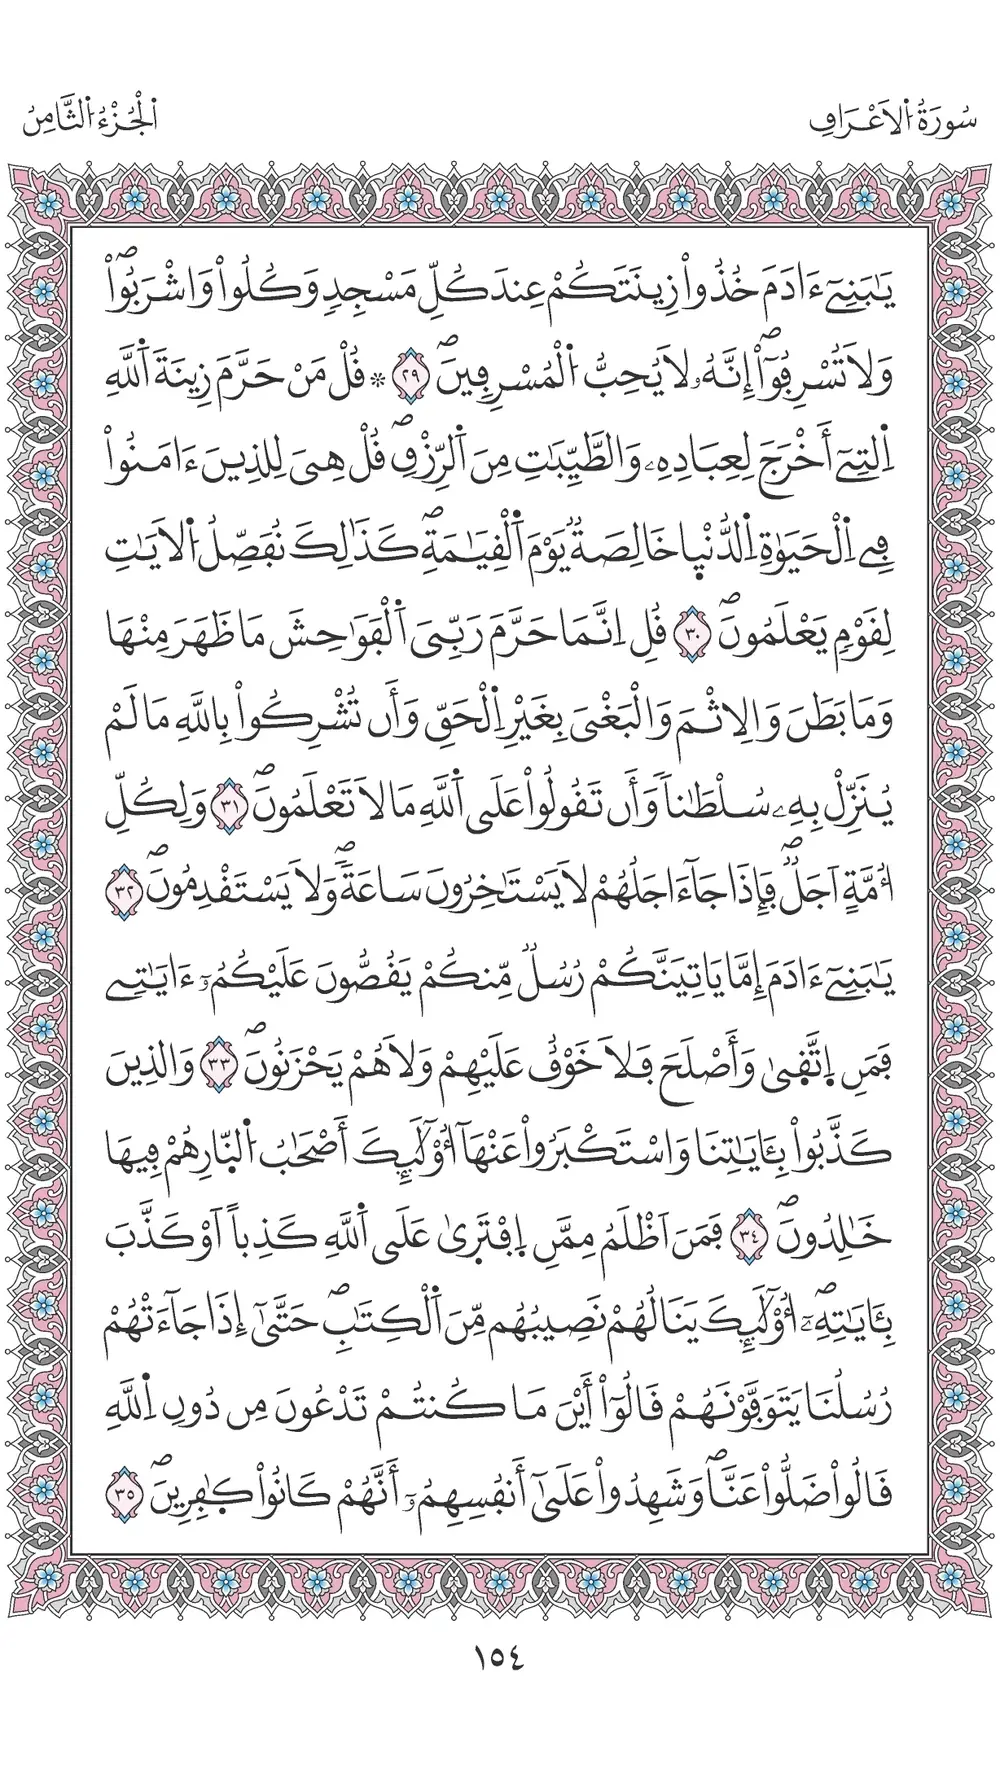 سُورَةُ اُ۬لَاعْرَافِ
اَ۬لْجُزْءُ اُ۬لثَّامِنُ
يَٰبَنِےٓ ءَادَمَ خُذُواْ زِينَتَكُمْ عِندَ كُلِّ مَسْجِدٖ وَكُلُواْ وَاشْرَبُواْۖ
وَلَا تُسْرِفُوٓاْۖ إِنَّهُۥ لَا يُحِبُّ اُ۬لْمُسْرِفِينَۖ ۝٢٩ ۞ قُلْ مَنْ حَرَّمَ زِينَةَ اَ۬للَّهِ
اِ۬لتِےٓ أَخْرَجَ لِعِبَادِهِۦ وَالطَّيِّبَٰتِ مِنَ اَ۬لرِّزْقِۖ قُلْ هِيَ لِلذِينَ ءَامَنُواْ
فِے اِ۬لْحَيَوٰةِ اِ۬لدُّنْي۪ا خَالِصَةٞ يَوْمَ اَ۬لْقِيَٰمَةِۖ كَذَٰلِكَ نُفَصِّلُ اُ۬لَايَٰتِ
لِقَوْمٖ يَعْلَمُونَۖ ۝٣٠ قُلِ اِنَّمَا حَرَّمَ رَبِّيَ اَ۬لْفَوَٰحِشَ مَا ظَهَرَ مِنْهَا
وَمَا بَطَنَ وَالِاثْمَ وَالْبَغْيَ بِغَيْرِ اِ۬لْحَقِّ وَأَن تُشْرِكُواْ بِاللَّهِ مَا لَمْ
يُنَزِّلْ بِهِۦ سُلْطَٰناٗ وَأَن تَقُولُواْ عَلَى اَ۬للَّهِ مَا لَا تَعْلَمُونَۖ ۝٣١ وَلِكُلِّ
أُمَّةٍ اَجَلٞۖ فَإِذَا جَآءَ اجَلُهُمْ لَا يَسْتَٰخِرُونَ سَاعَةٗۖ وَلَا يَسْتَقْدِمُونَۖ ۝٣٢
يَٰبَنِےٓ ءَادَمَ إِمَّا يَاتِيَنَّكُمْ رُسُلٞ مِّنكُمْ يَقُصُّونَ عَلَيْكُمُۥٓ ءَايَٰتِے
فَمَنِ اِ۪تَّق۪ىٰ وَأَصْلَحَ فَلَا خَوْفٌ عَلَيْهِمْ وَلَا هُمْ يَحْزَنُونَۖ ۝٣٣ وَالذِينَ
كَذَّبُواْ بِـَٔايَٰتِنَا وَاسْتَكْبَرُواْ عَنْهَآ أُوْلَٰٓئِكَ أَصْحَٰبُ اُ۬لنّ۪ارِ هُمْ فِيهَا
خَٰلِدُونَۖ ۝٣٤ فَمَنَ اَظْلَمُ مِمَّنِ اِ۪فْتَر۪ىٰ عَلَى اَ۬للَّهِ كَذِباً اَوْ كَذَّبَ
بِـَٔايَٰتِهِۦٓۖ أُوْلَٰٓئِكَ يَنَالُهُمْ نَصِيبُهُم مِّنَ اَ۬لْكِتَٰبِۖ حَتَّىٰٓ إِذَا جَآءَتْهُمْ
رُسُلُنَا يَتَوَفَّوْنَهُمْ قَالُوٓاْ أَيْنَ مَا كُنتُمْ تَدْعُونَ مِن دُونِ اِ۬للَّهِ
قَالُواْ ضَلُّواْ عَنَّاۖ وَشَهِدُواْ عَلَىٰٓ أَنفُسِهِمُۥٓ أَنَّهُمْ كَانُواْ كٰ۪فِرِينَۖ ۝٣٥
١٥٤